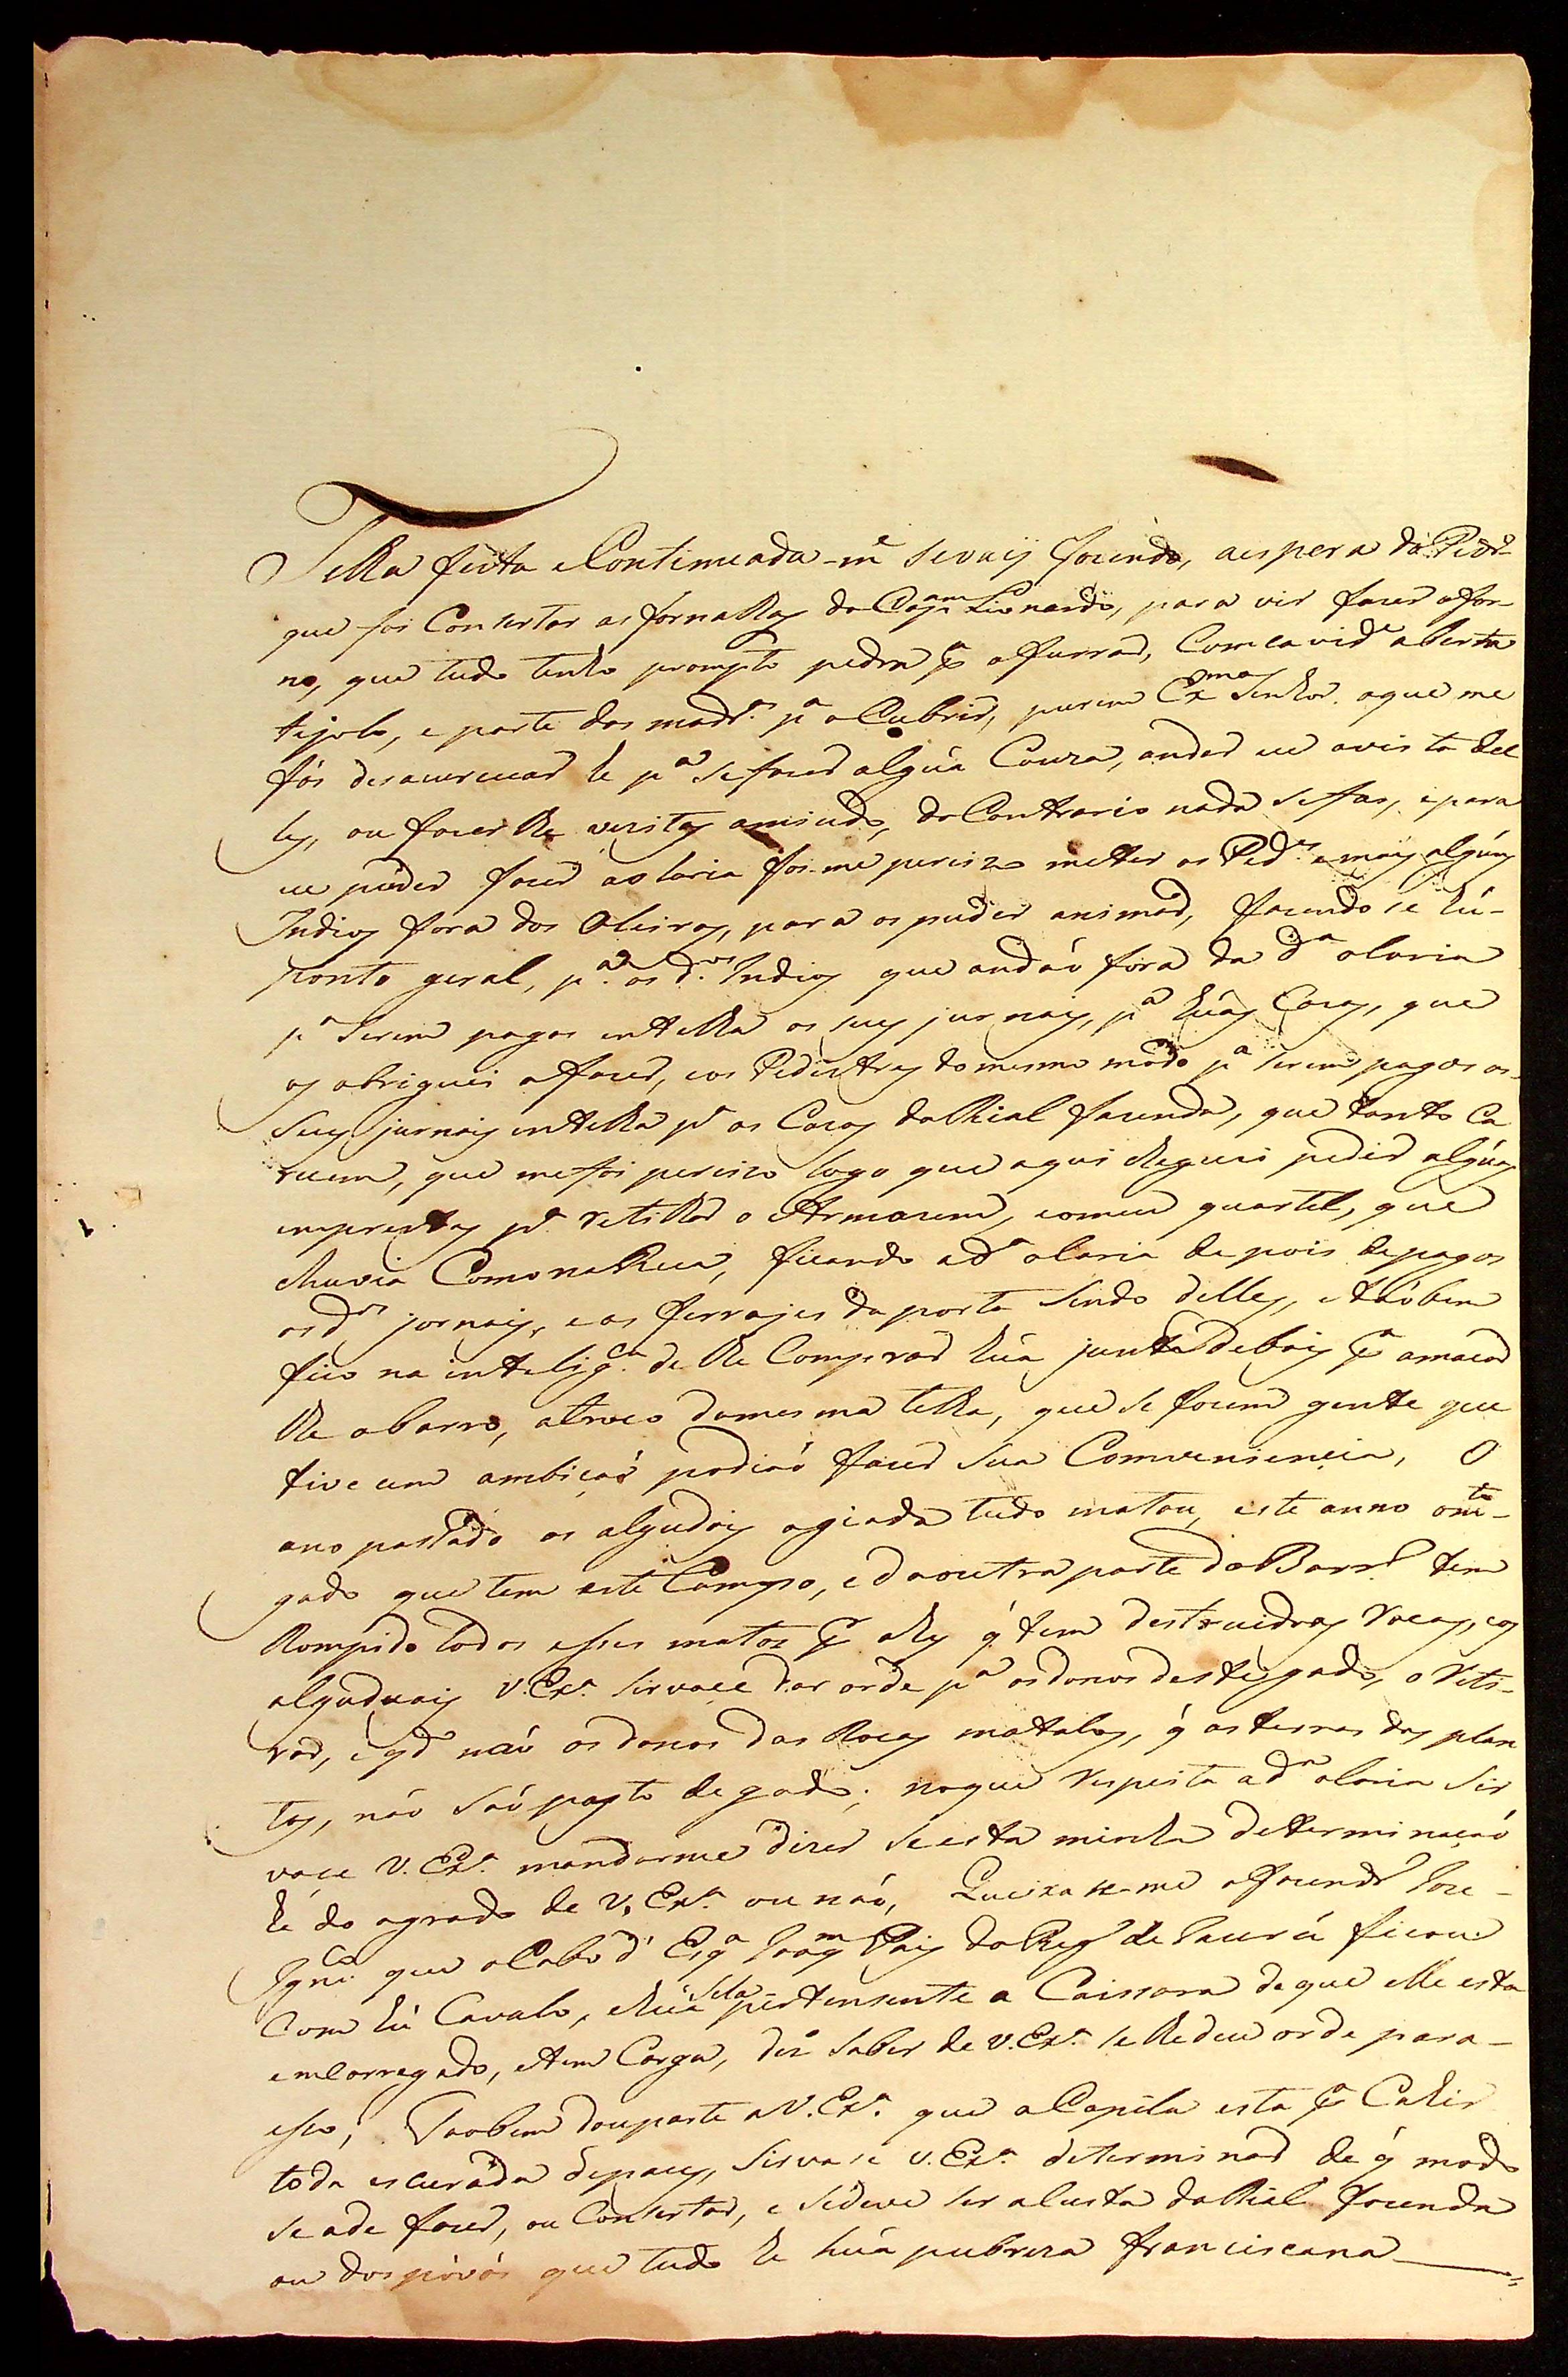 Telha feita e Continuada-m.e se vaij facendo, a espera do Pedr.o
que foi Consertar as fornalhas do Cap.am Lionardo, para vir facer o for-
no, que tudo tenho prompto pedra p.a o furrar, Com cavid.e aberta
tijolo, e parte das madr.as p.a o Cubrir, purem Ex.mo Senhor. o que me
fás desacurcuar he p.a se facer algũa Couza, andar eu a vista del
les, ou facer lhe vezitas a miudo, do Contrario nada se fas, e para
eu puder facer a olaria foi-me percizo metter os Ped.es e mais algúns
Indios fora dos Oleiros, para os puder animar, facendo se hú-
ponto geral, p.a os d.os Indios que andaó fora da d.a olaria
p.a Serem pagos em telha os seus jurnais, p.a húas Cacas, que
os obriguei a facer, e os Pedestres do mesmo modo p.a serem pagos os-
Seus jurnais em telha p.a as Cacas da Rial facenda, que tanto Ca
recem, que me foi percizo logo que aqui cheguei pedir algúas
imprestas p.a retilhar o Armacem, e o meu quartel, que
chuvia Como na Rua, ficando a d.a olaria depois de pagos
os d.os jornais, e as ferrajes da porta Sendo delles, e taóbem
fico na intelig.ca de lhe Comprar húa junta de bois p.a amacar
lhe o barro, a troco da mesma telha, que se forem gente que
tivecem ambicaó podiaó facer Sua Comveniencia, O
ano passado os algudois a giada tudo matou, este anno o m.to-
gado que tem este Campo, e da outra parte do Barr.o tem
Rompido todos esses matos p.a elles q́ tem destruidoas rocas, e os
alguduais V. Ex.a sirvace dar orde p.a os donos deste gado, o reti-
rar, e q.do naó os donos das Rocas matalos, q́ as terras das plan
tas, náo saó pasto de gado; no que respeita a d.a olaria Sir
vace V. Ex.a mandarme dizer se esta minha determinacaó
hé do agrado de V. Ex.a ou náo, Queixa se-me o facend.o Joze-
Ign.co que o Cabo d' Esq.a Joaq.m Pais do Reg.o de
ficou
Com hú Cavalo, e húa sela pertensente a Caissara de que elle esta
emcarregado, e tem Carga, dez.a saber de V. Ex.a se lhe deu orde para-
esso; Taobem dou parte a V. Ex.a que a Capela esta p.a Cahir
toda escurada de paos, Sirva se V. Ex.a determinar de q́ modo
se a de facer, ou Consertar, e se deve ser a custa da Rial facenda
ou dos póvós que tudo he húa pubreza franciscana